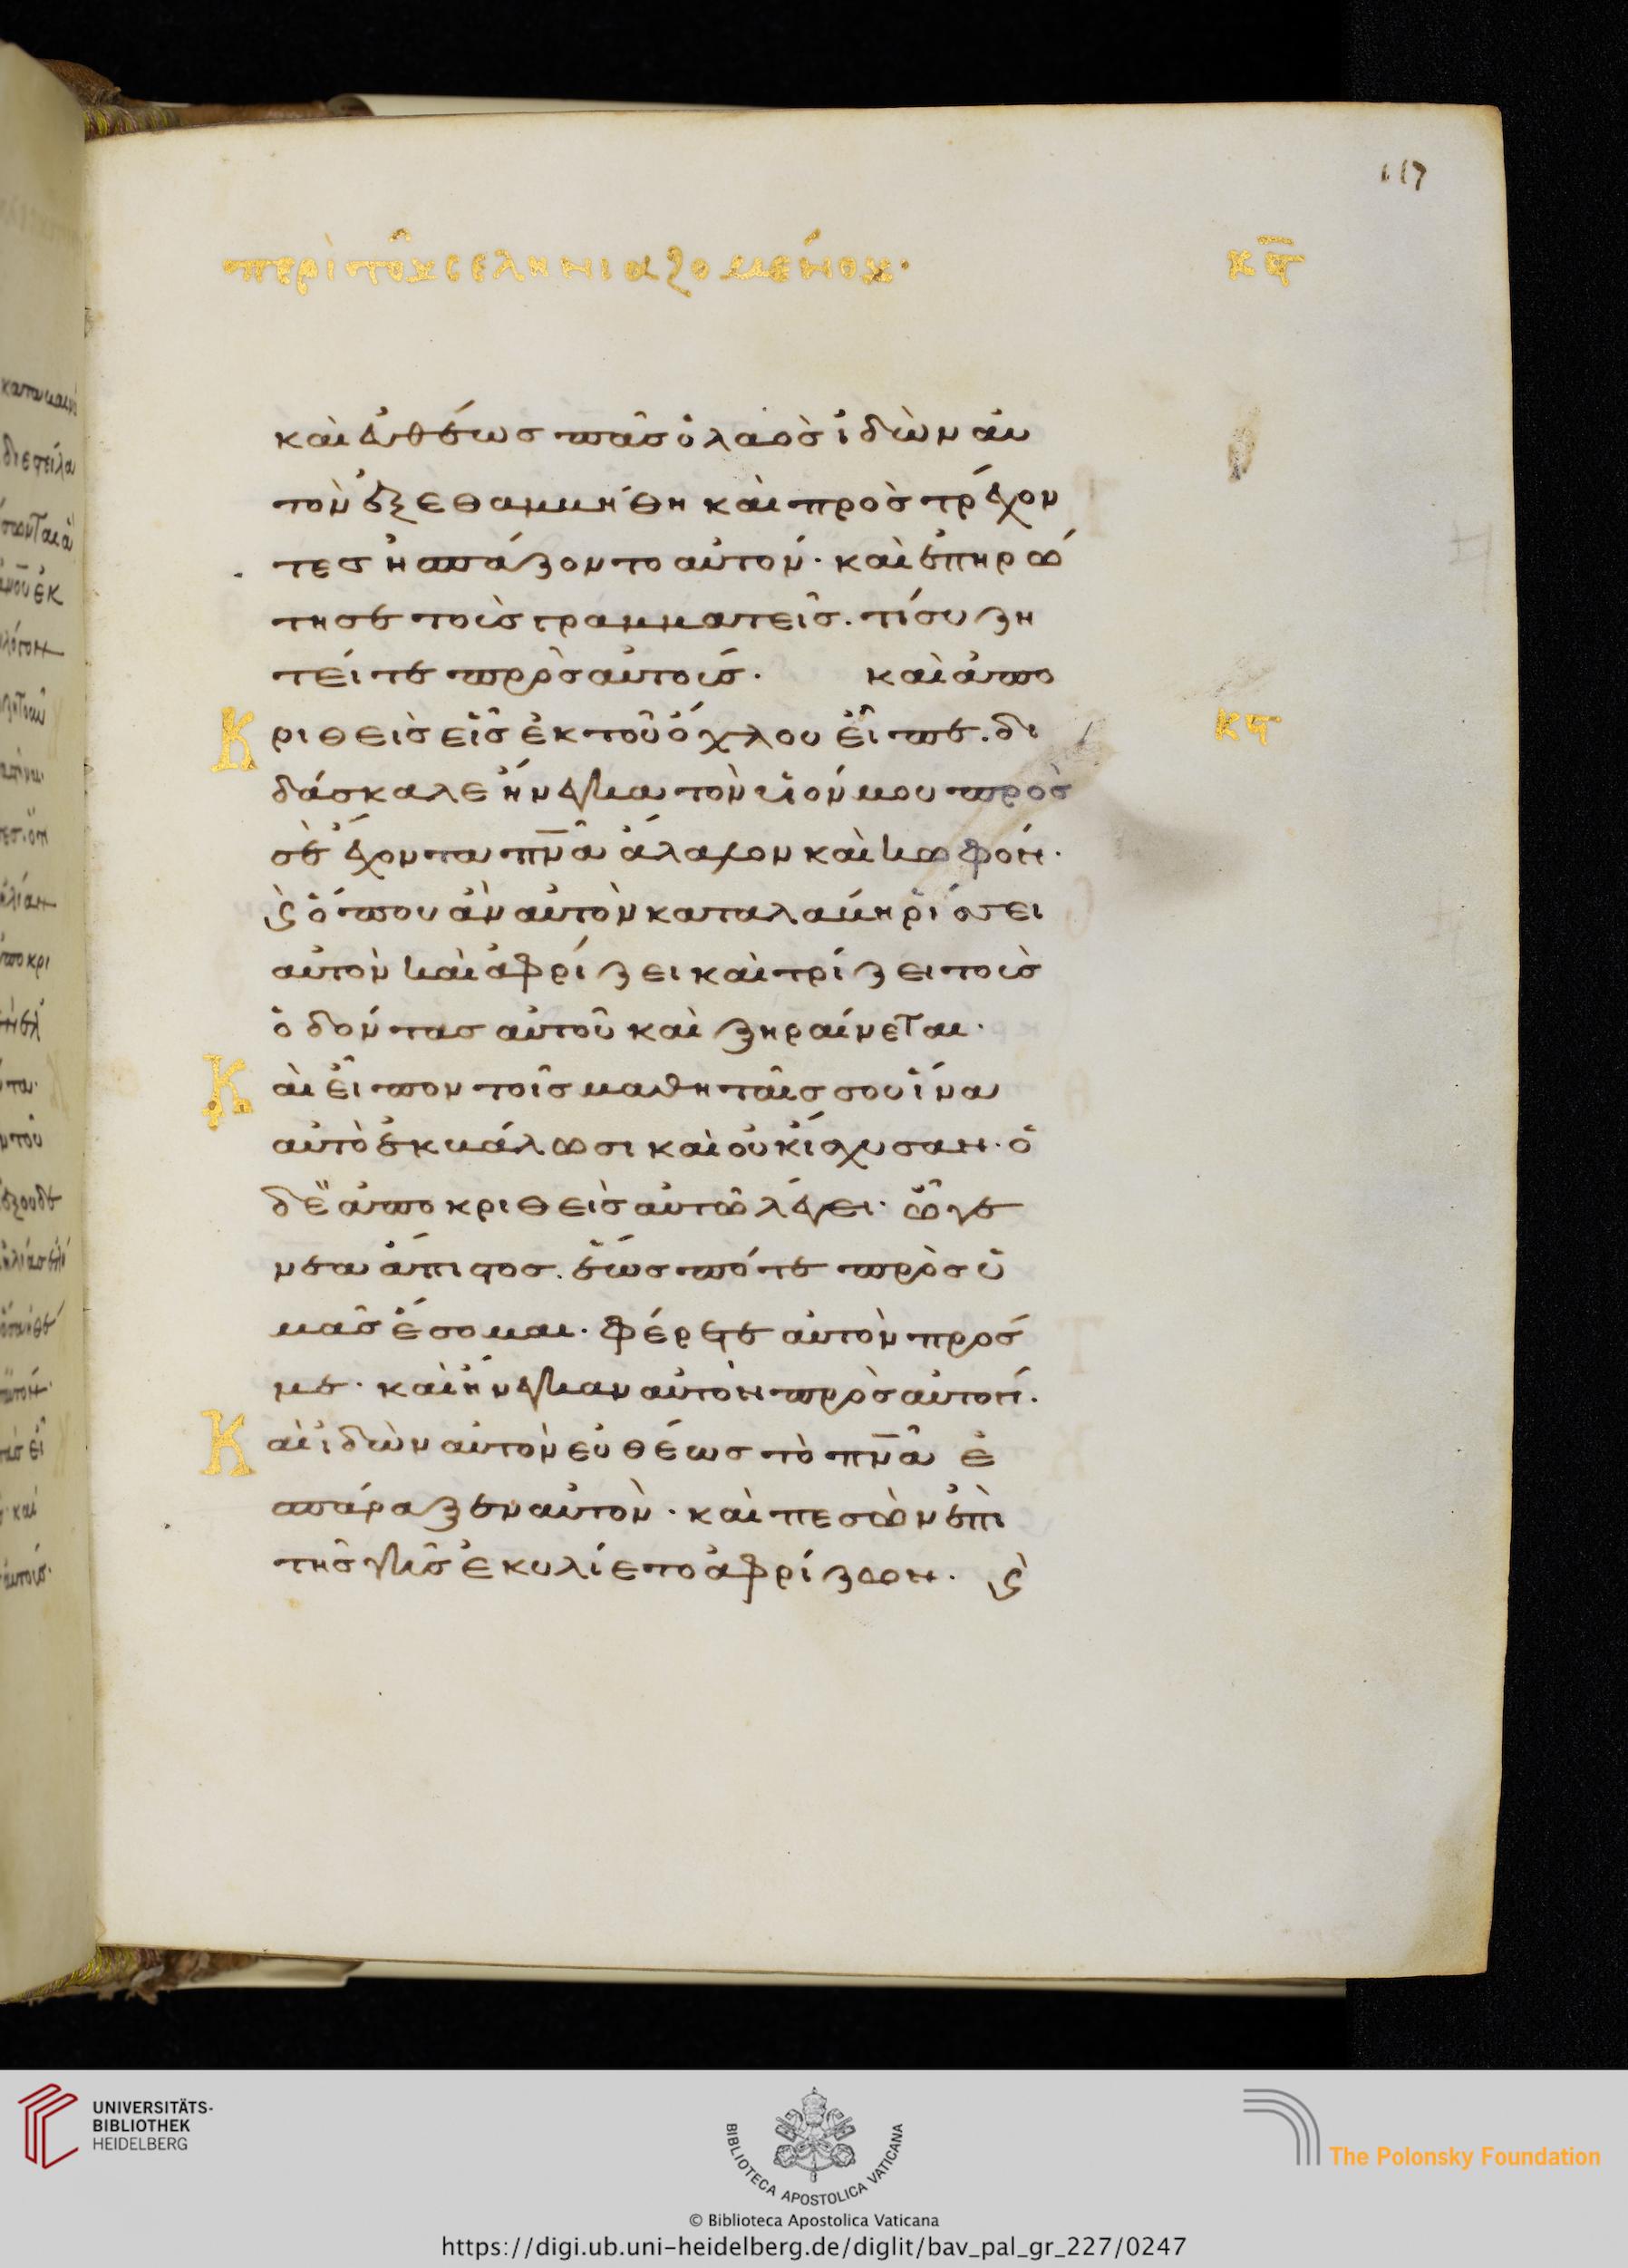 117
περὶ τοῦ σεληνιαζομένου· κϛ
καὶ ἐυθέως πᾶσ ὁ λαὸσ ἰδὼν αὐ
τὸν ἐξεθαμμήθη καὶ προστρέχον
τεσ ἠσπάζοντο αὐτόν· καὶ ἐπηρώ
τησε τοὺσ γραμματεῖσ. τί συζη
τεῖτε πρὸσ αὐτούσ· καὶ ἀπο
κριθεὶσ εἷσ ἐκ τοῦ ὄχλου εἶπε. δι κϛ
δάσκαλε ἤνεγκα τὸν υἱόν μου πρὸσ
σὲ ἔχοντα πν̅α ἄλαλον καὶ κωφόν·
ϗ ὅπου ἂν αὐτὸν καταλάμη ῥίσσει
αὐτὸν καὶ ἀφρίζει καὶ τρίζει τοὺσ
ὀδόντασ αὐτοῦ καὶ ξηραίνεται·
Καὶ εἶπον τοῖσ μαθηταῖσ σου ἵνα
αὐτὸ ἐκμάλωσι καὶ οὐκ ἴσχυσαν· ὁ
δὲ ἀποκριθεὶσ αὐτῶ λέγει· ὦ γε
νεὰ ἄπιστοσ. ἕωσ πότε πρὸσ ὑ
μᾶσ ἔσομαι· φέρετε αὐτὸν πρόσ
με· καὶ ἤνεγκαν αὐτὸν πρὸσ αὐτόν.
Καὶ ἰδὼν αὐτὸν εὐθέωσ τὸ πν̅α ἐ
σπάραξεν αὐτὸν· καὶ πεσὼν ἐπὶ
τῆσ γῆσ ἐκυλίετο ἀφρίζων· ϗ
UNIVERSITÄTS-
BIBLIOTHEK
HEIDELBERG
BIBLIOTECA APOSTOLICA VATICANA
The Polonsky Foundation
© Biblioteca Apostolica Vaticana
https://digi.ub.uni-heidelberg.de/diglit/bav_pal_gr_227/0247